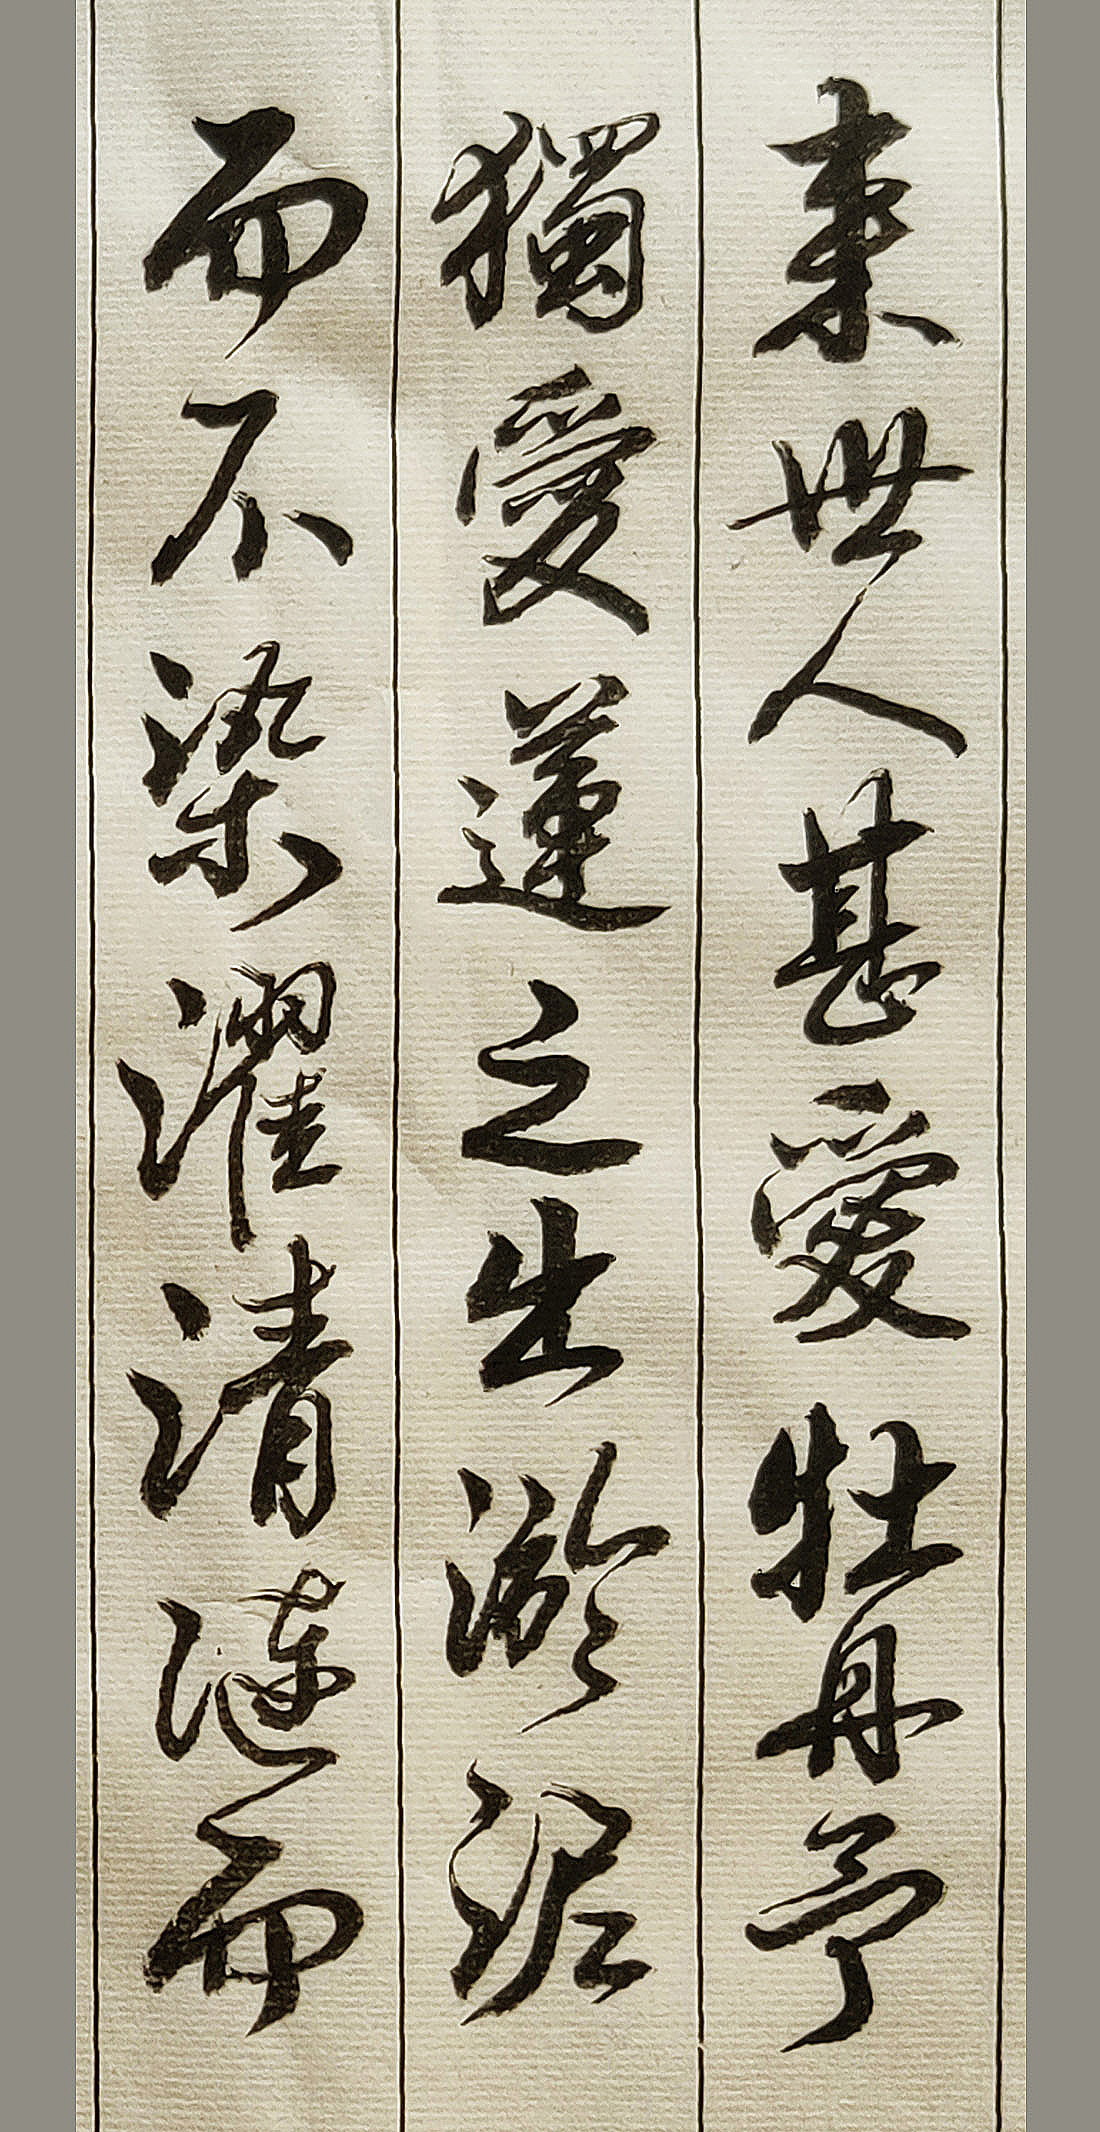 来世人甚愛牡丹予
獨愛蓮之出淤泥
而不染濯清漣而